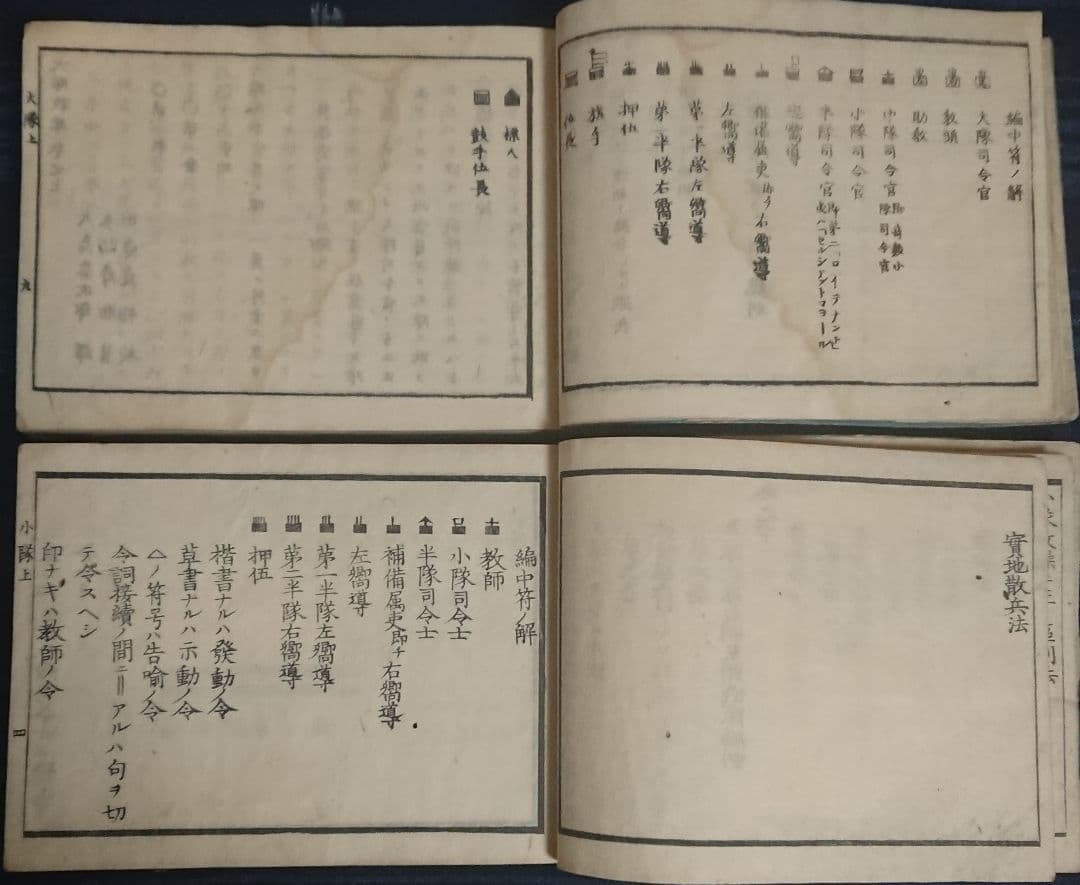 編中符ノ解
大隊司令官
教頭
助教
中隊司令官
小隊司令官
半隊司令官
左嚮導
第一半隊左嚮導
第二半隊右嚮導
押伍
旗手
伍長
標人
鼓手伍長
大隊上
九
實地散兵法
編中符ノ解
教師
小隊司令士
半隊司令士
補備属吏即チ右嚮導
左嚮導
第一半隊左嚮導
第二半隊右嚮導
押伍
楷書ナルハ發動ノ令
草書ナルハ示動ノ令
ヘノ符号ハ告喻ノ令
令詞接續ノ間ニ‖アルハ句ヲ切
テ令スヘシ
印ナキハ教師ノ令
小隊上
四